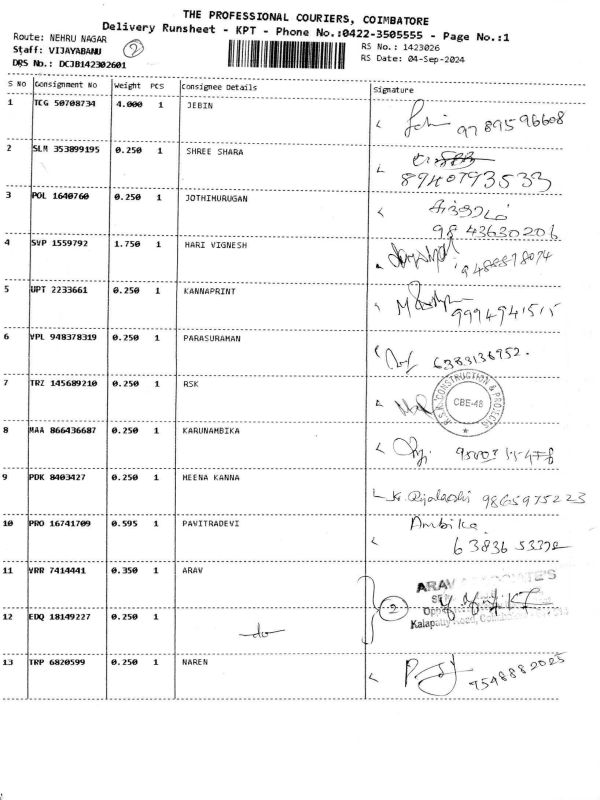 THE PROFESSIONAL COURIERS, COIMBATORE
Delivery Runsheet - KPT - Phone No.:0422-3505555 - Page No.:1
Route: NEHRU NAGAR
Staff: VIJAYABANU 2
DRS No.: DCJB142302601
RS No.: 1423026
RS Date: 04-Sep-2024
S NO Consignment No Weight PCS Consignee Details Signature
1 TCG 50708734 4.000 1 JEBIN 9789596608
2 SLM 353899195 0.250 1 SHREE SHARA 8940793533
3 POL 1640760 0.250 1 JOTHIMURUGAN
9843630206
4 SVP 1559792 1.750 1 HARI VIGNESH
5 UPT 2233661 0.250 1 KANNAPRINT 9994941515
6 VPL 948378319 0.250 1 PARASURAMAN 6383136952.
7 TRZ 145689210 0.250 1 RSK
R.S.K. CONSTRUCTION & PROJECTS
CBE-48
8 MAA 866436687 0.250 1 KARUNAMBIKA
9 PDK 8403427 0.250 1 MEENA KANNA 9865975223
10 PRO 16741709 0.595 1 PAVITRADEVI Ambika
11 VRR 7414441 0.350 1 ARAV
ARAV
2
12 EDQ 18149227 0.250 1 do
Kalapatty Road,
13 TRP 6820599 0.250 1 NAREN 9548882025